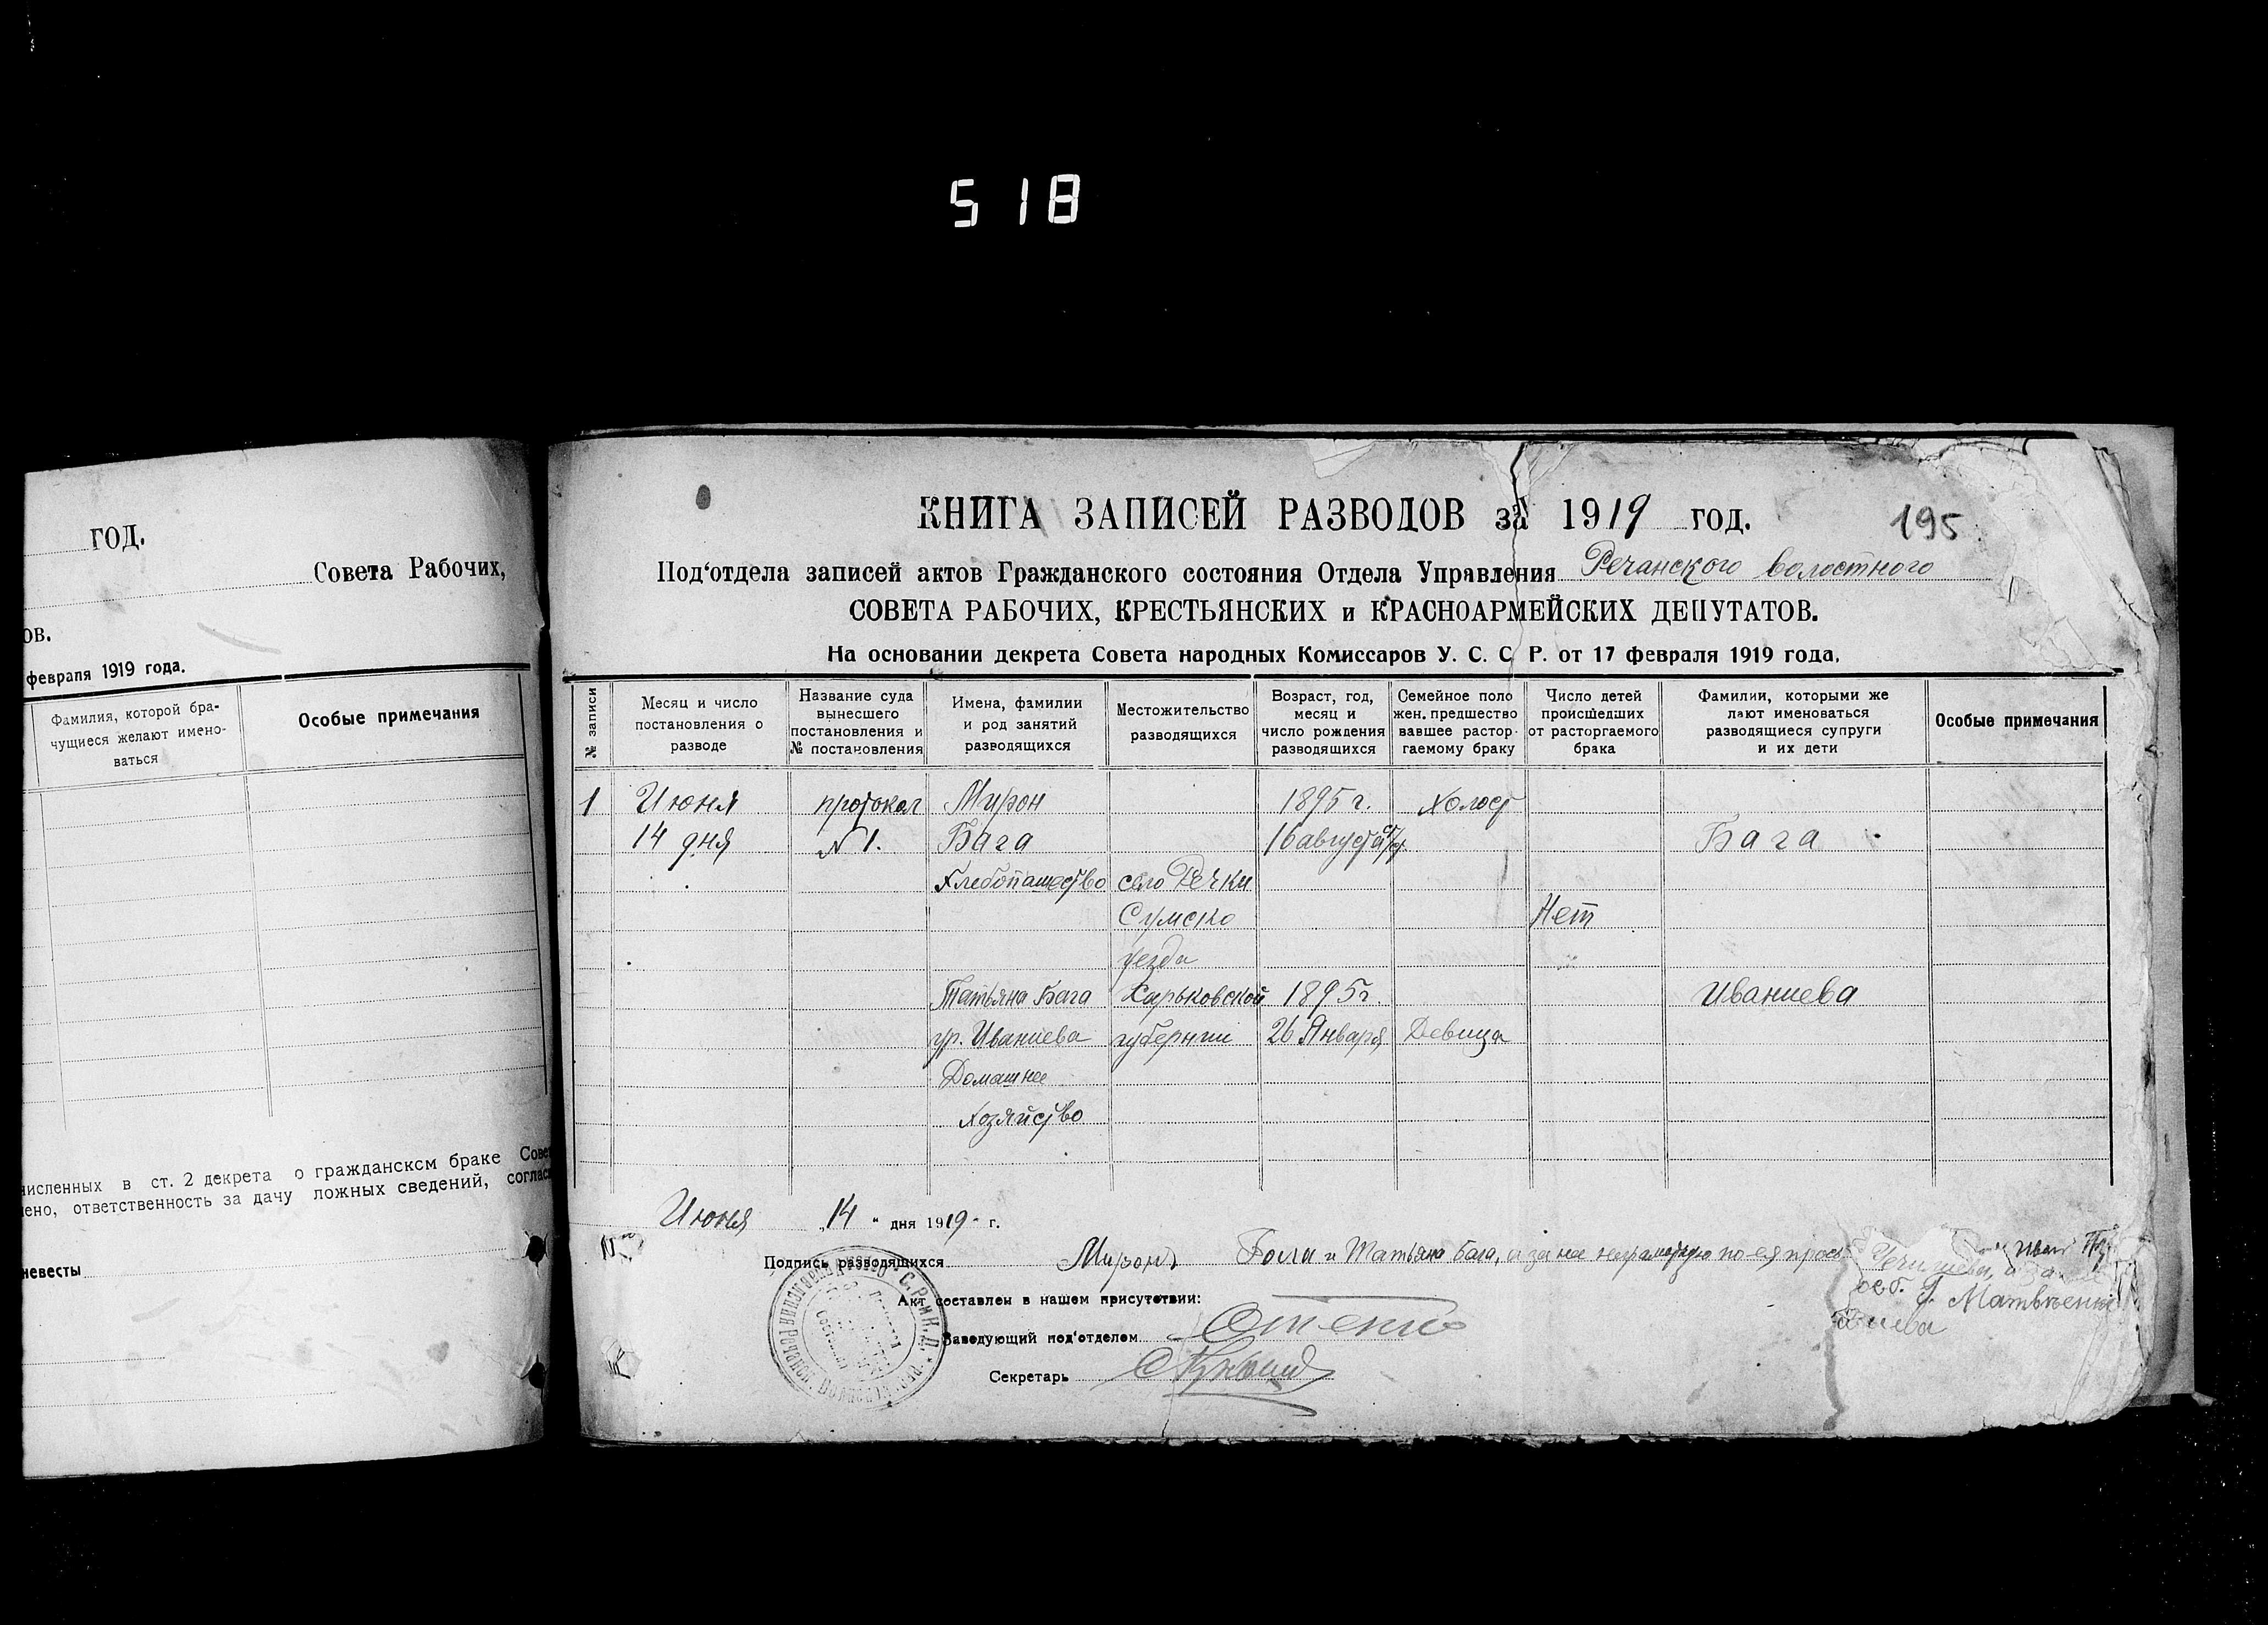 518
ГОД.
Совета Рабочих,
ов.
февраля 1919 года.
Фамилия, которой бра-
чущиеся желают имено-
ваться
Особые примечания
численных в ст. 2 декрета о гражданском браке Сове
ено, ответственность за дачу ложных сведений, соглас
невесты
КНИГА ЗАПИСЕЙ РАЗВОДОВ за 1919 год.
195
Под‘отдела записей актов Гражданского состояния Отдела Управления Речанского волостного
СОВЕТА РАБОЧИХ, КРЕСТЬЯНСКИХ и КРАСНОАРМЕЙСКИХ ДЕПУТАТОВ.
На основании декрета Совета народных Комиссаров У. С. С. Р. от 17 февраля 1919 года.
№ записи
Месяц и число
постановления о
разводе
Название суда
вынесшего
постановления и
№ постановления
Имена, фамилии
и род занятий
разводящихся
Местожительство
разводящихся
Возраст, год,
месяц и
число рождения
разводящихся
Семейное поло
жен. предшество
вавшее растор-
гаемому браку
Число детей
происшедших
от расторгаемого
брака
Фамилии, которыми же
лают именоваться
разводящиеся супруги
и их дети
Особые примечания
1 Июня протокол Мирон 1895 г. Холост
14 дня №1. Бага 16 августа Бага
Хлебопашество село Речки
Сумско Нет
уезда
Татьяна Бага Харьковской 1895 г. Иваниева
ур. Иваниева губернии 26 Января Девица
Домашнее
Хозяйство
Июня „14 “ дня 1919 г.
Подпись разводящихся Миронъ и Татьяна Бага, а за нее неграмотную по ея прось
Иван
Матвѣенк
Акт составлен в нашем присутствии:
Заведующий под‘отделом
Секретарь